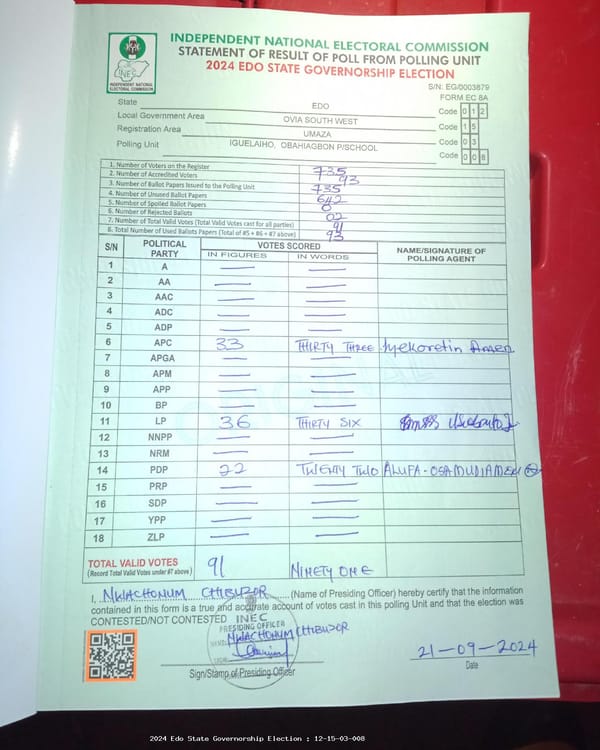 INDEPENDENT NATIONAL ELECTORAL COMMISSION
STATEMENT OF RESULT OF POLL FROM POLLING UNIT
2024 EDO STATE GOVERNORSHIP ELECTION
INEC
INDEPENDENT NATIONAL
ELECTORAL COMMISSION
S/N: EG/0003879
FORM EC 8A
State EDO Code 0 1 2
Local Government Area OVIA SOUTH WEST Code 1 5
Registration Area UMAZA Code 0 3
Polling Unit IGUELAIHO, OBAHIAGBON P/SCHOOL Code 0 0 8
1. Number of Voters on the Register 735
2. Number of Accredited Voters 93
3. Number of Ballot Papers Issued to the Polling Unit 735
4. Number of Unused Ballot Papers 642
5. Number of Spoiled Ballot Papers 0
6. Number of Rejected Ballots 02
7. Number of Total Valid Votes (Total Valid Votes cast for all parties) 91
8. Total Number of Used Ballots Papers (Total of #5 + #6 + #7 above) 93
S/N POLITICAL PARTY VOTES SCORED NAME/SIGNATURE OF POLLING AGENT
IN FIGURES IN WORDS
1 A — —
2 AA — —
3 AAC — —
4 ADC — —
5 ADP — —
6 APC 33 THIRTY THREE
7 APGA — —
8 APM — —
9 APP — —
10 BP — —
11 LP 36 THIRTY SIX
12 NNPP — —
13 NRM — —
14 PDP 22 TWENTY TWO
15 PRP — —
16 SDP — —
17 YPP — —
18 ZLP — —
TOTAL VALID VOTES 91 NINETY ONE
(Record Total Valid Votes under #7 above)
I, NWACHONUM CHIBUZOR (Name of Presiding Officer) hereby certify that the information
contained in this form is a true and accurate account of votes cast in this polling Unit and that the election was
CONTESTED/NOT CONTESTED
INEC
PRESIDING OFFICER
NWACHONUM CHIBUZOR
Sign/Stamp of Presiding Officer
21-09-2024
Date
2024 Edo State Governorship Election : 12-15-03-008